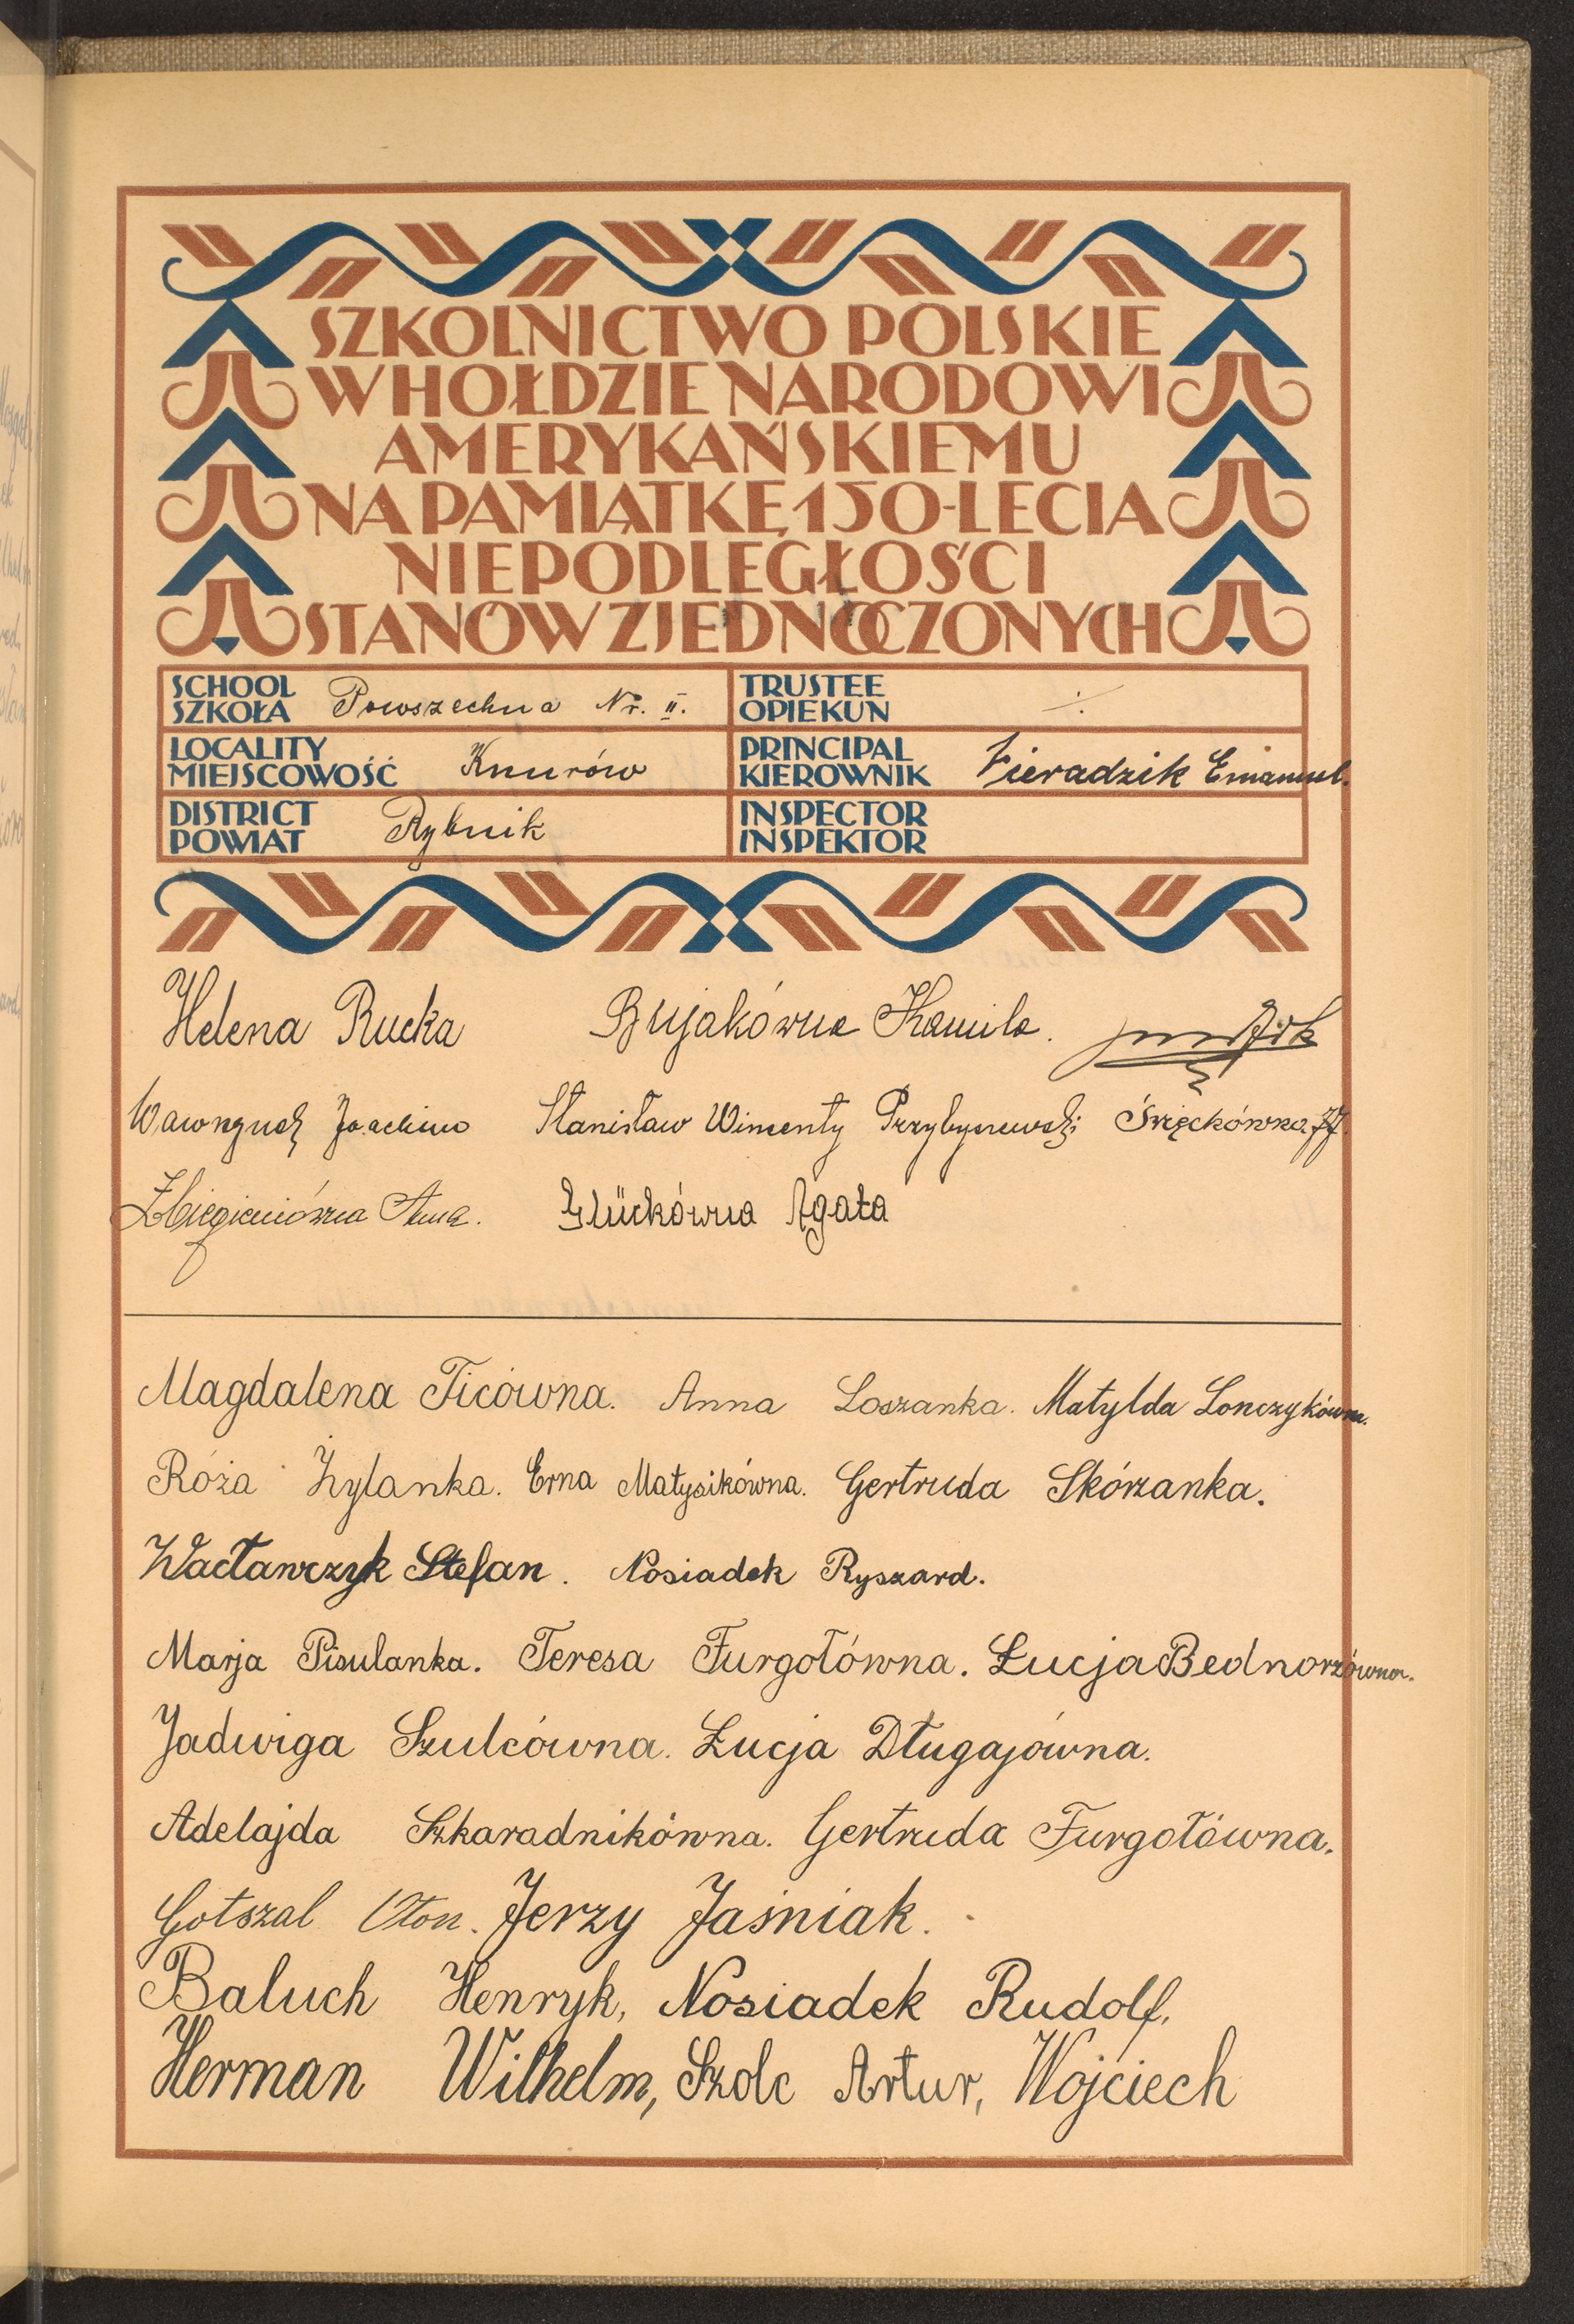 SZKOLNICTWO POLSKIE
W HOŁDZIE NARODOWI
AMERYKAŃSKIEMU
NA PAMIĄTKĘ 150-LECIA
NIEPODLEGŁOŚCI
STANÓW ZJEDNOCZONYCH
SCHOOL SZKOŁA Powszechna Nr. II.
TRUSTEE OPIEKUN
LOCALITY MIEJSCOWOŚĆ Knurów
PRINCIPAL KIEROWNIK Sieradzik Emanuel.
DISTRICT POWIAT Rybnik
INSPECTOR INSPEKTOR
Helena Rucka Bujakówna Kamila.
Joachim Stanisław Wincenty Przybyszewski Święckówna
Zbiegieniówna Anna. Glückówna Agata
Magdalena Ficówna. Anna Loszanka. Matylda Lonczykówna.
Róża Żylanka. Erna Matysikówna. Gertruda Skórzanka.
Wacławczyk Stefan. Nosiadek Ryszard.
Marja Pisulanka. Teresa Furgołówna. Łucja Bednorzówna.
Jadwiga Szulcówna. Łucja Długajówna.
Adelajda Szkaradnikówna. Gertruda Furgołówna.
Gotszal Oton. Jerzy Jaśniak.
Baluch Henryk, Nosiadek Rudolf,
Herman Wilhelm, Szolc Artur, Wojciech